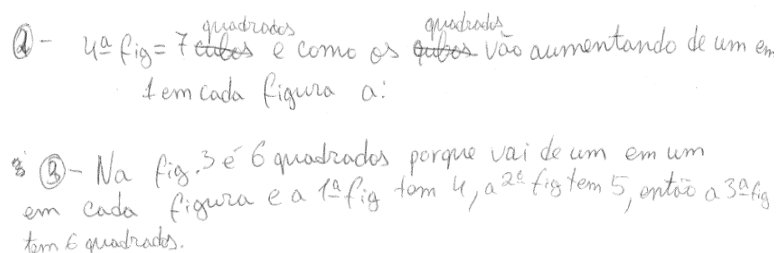 2- 4ª fig = 7 quadrados e como os quadrados vão aumentando de um em
1 em cada figura a:
3- Na fig. 3 é 6 quadrados porque vai de um em um
em cada figura e a 1ª fig tem 4, a 2ª fig tem 5, então a 3ª fig
tem 6 quadrados.